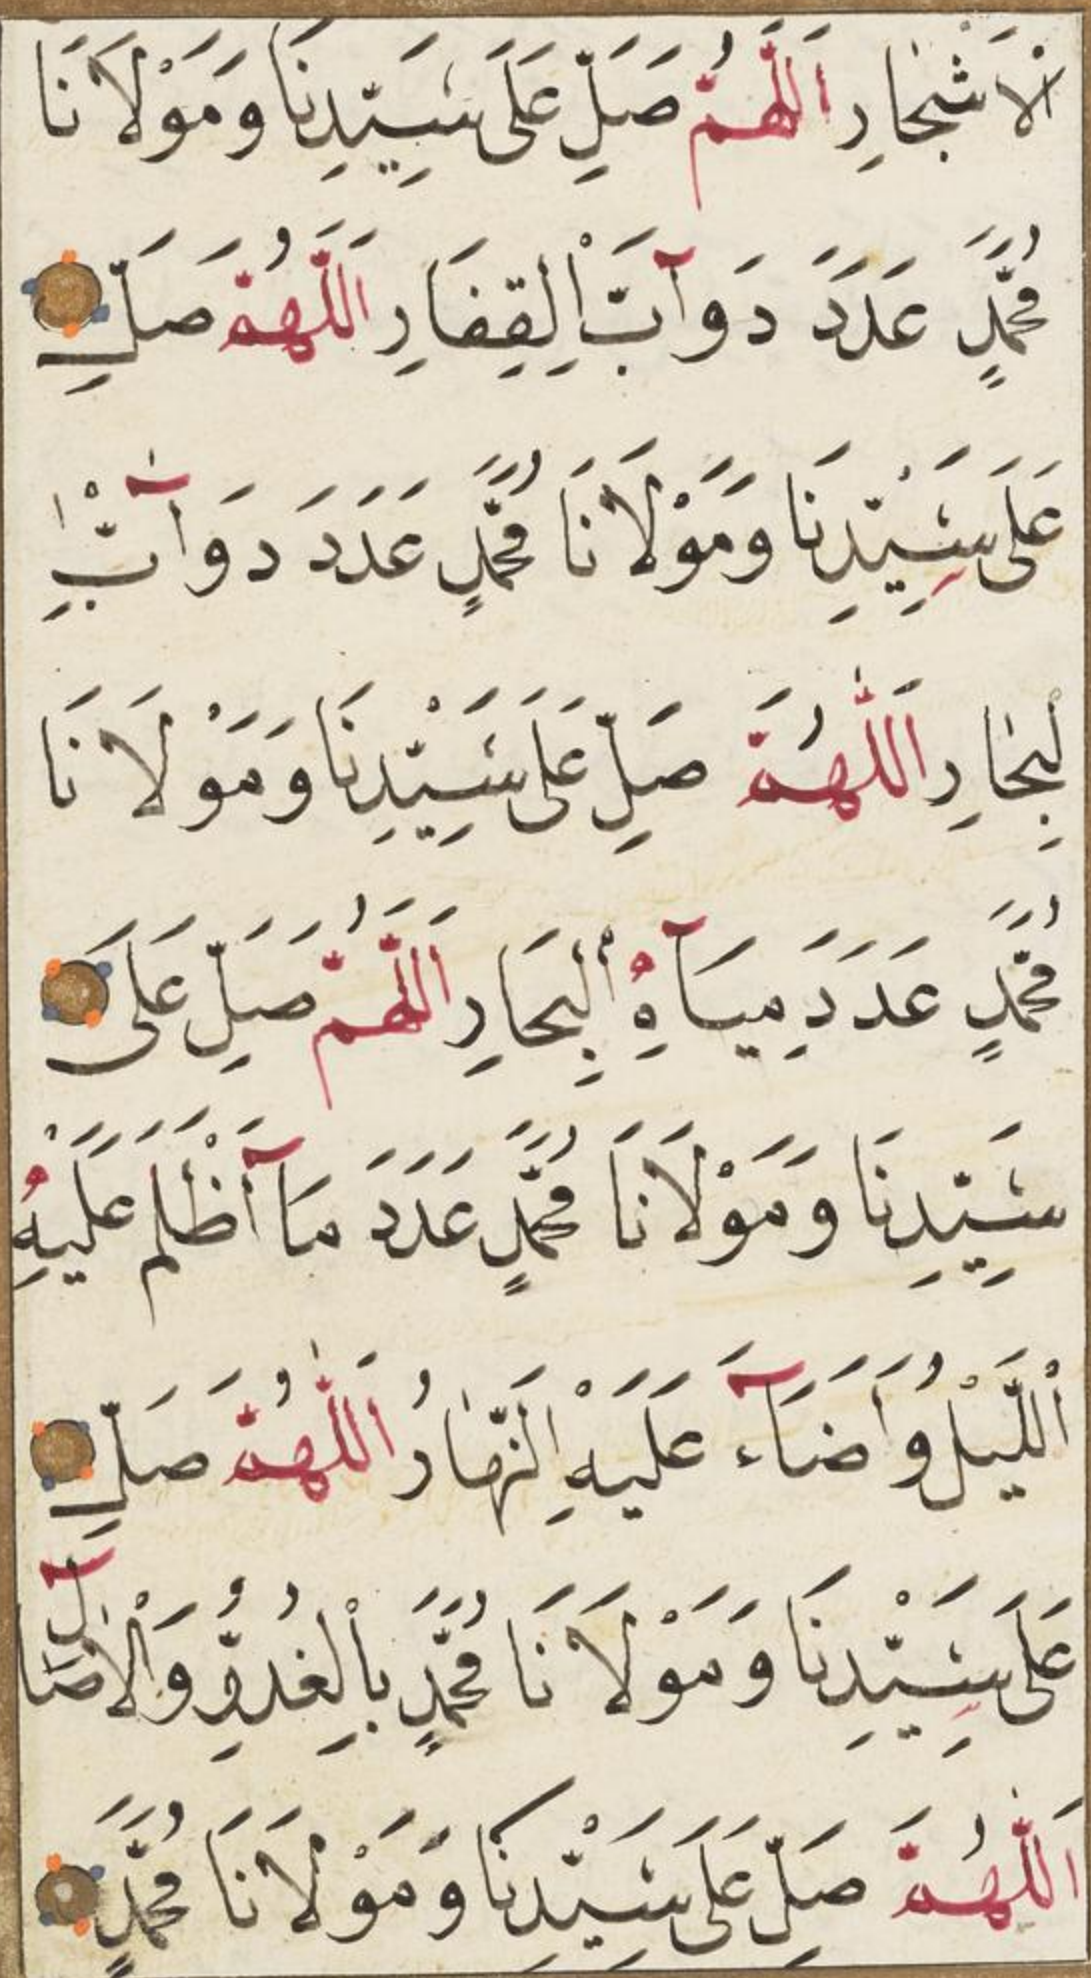 الْاَشْجَارِ اَللَّهُمَّ صَلِّ عَلَى سَيِّدِنَا وَمَوْلَانَا
مُحَمَّدٍ عَدَدَ دَوَآبِّ اْلقِفَارِ اَللَّهُمَّ صَلِّ
عَلَى سَيِّدِنَا وَمَوْلَانَا مُحَمَّدٍ عَدَدَ دَوَآبِّ اْ
لبِحَارِ اَللَّهُمَّ صَلِّ عَلَى سَيِّدِنَا وَمَوْلَانَا
مُحَمَّدٍ عَدَدَ مِيَآهِ اْلبِحَارِ اَللَّهُمَّ صَلِّ عَلَى
سَيِّدِنَا وَمَوْلَانَا مُحَمَّدٍ عَدَدَ مَآ أَظْلَمَ عَلَيْهِ
اْللَّيْلُ وَأَضَآءَ عَلَيْهِ النَّهَارُ اَللَّهُمَّ صَلِّ
عَلَى سَيِّدِنَا وَمَوْلَانَا مُحَمَّدٍ بِاْلغُدُوِّ وَاْلاٰصَالِ
اَللَّهُمَّ صَلِّ عَلَى سَيِّدِنَا وَمَوْلَانَا مُحَمَّدٍ